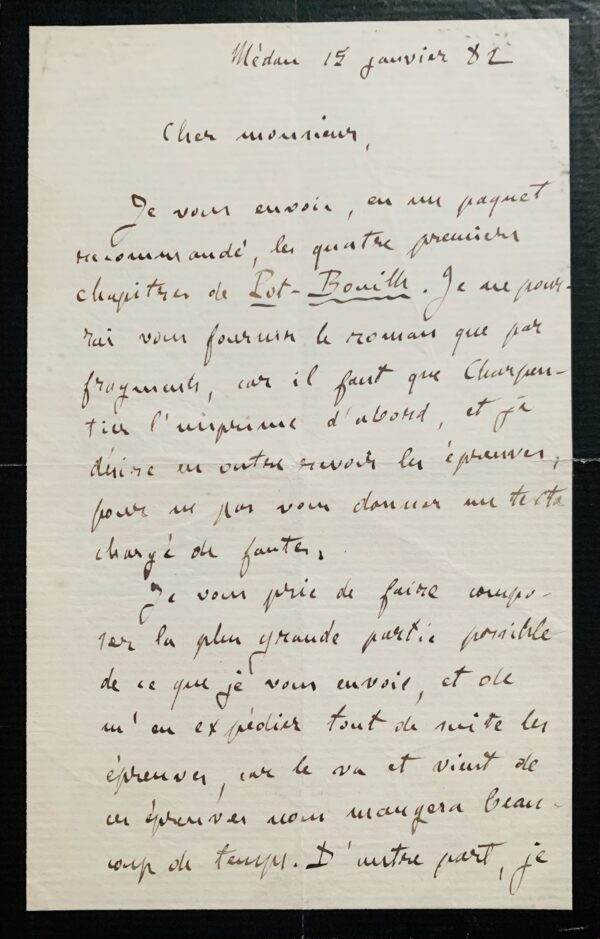 Médan 15 janvier 82
Cher monsieur,
Je vous envoie, en un paquet
recommandé, les quatre premiers
chapitres de Pot-Bouille. Je ne pour-
rai vous fournir le roman que par
fragments, car il faut que Charpen-
tier l'imprime d'abord, et je
désire en outre revoir les épreuves,
pour ne pas vous donner un texte
chargé de fautes.
Je vous prie de faire compo-
ser la plus grande partie possible
de ce que je vous envoie, et de
m'en expédier tout de suite les
épreuves, car le va et vient de
ces épreuves nous mangera beau-
coup de temps. D'autre part, je